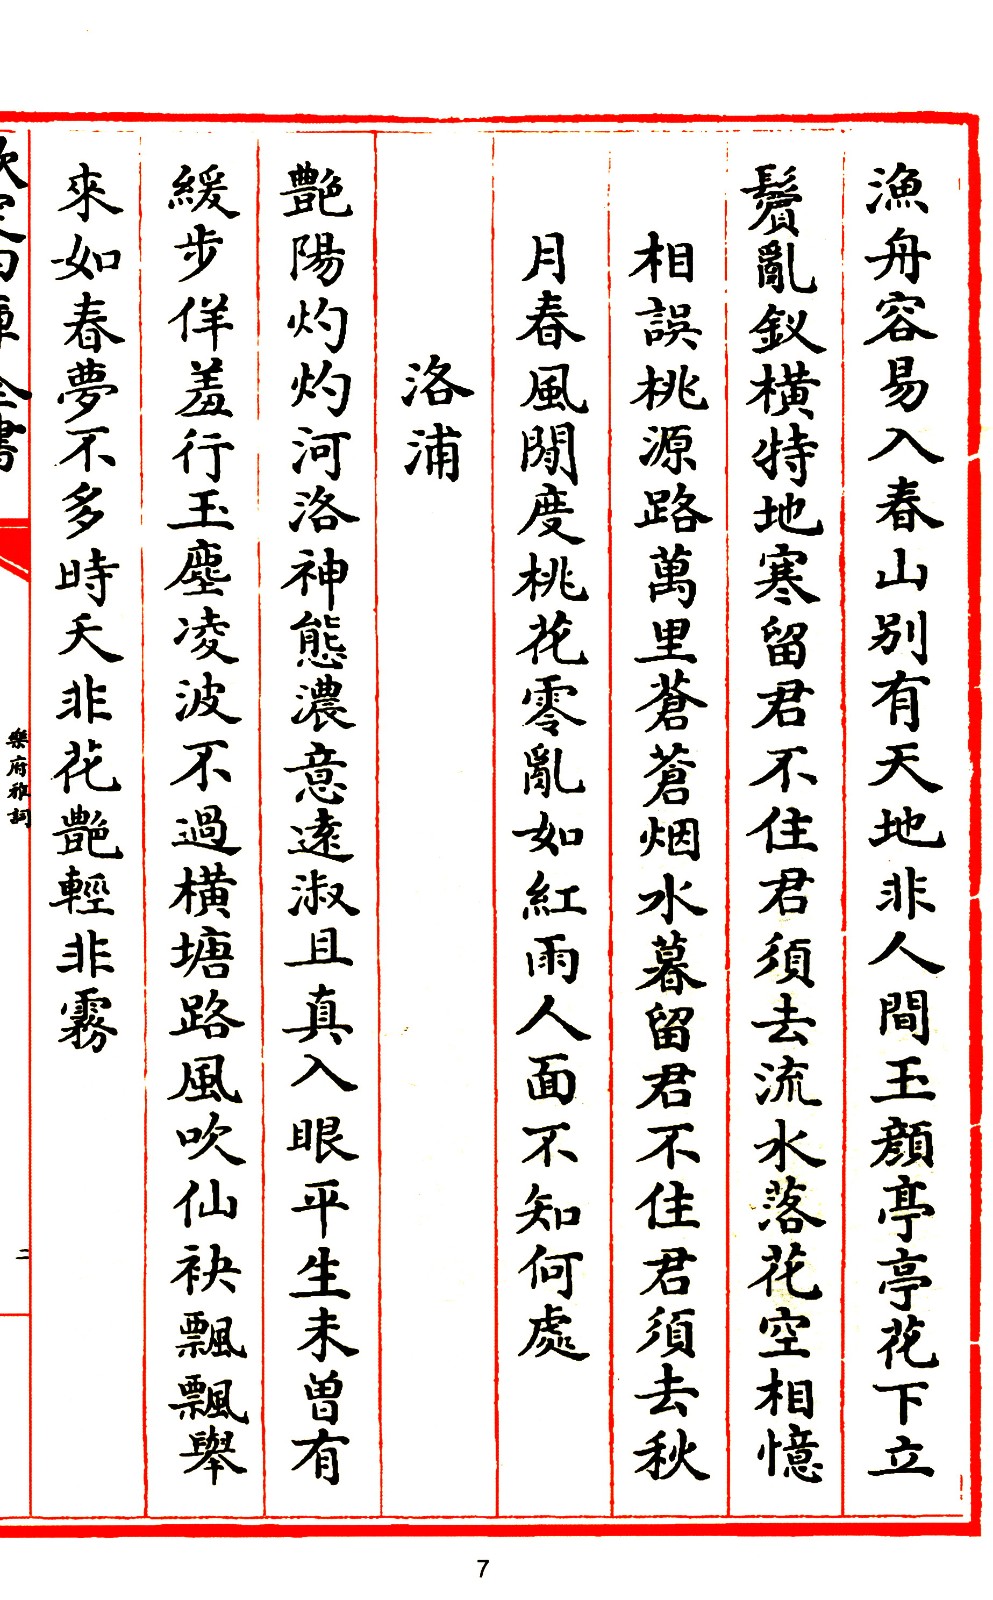 漁舟容易入春山別有天地非人間玉顔亭亭花下立
鬢亂釵橫特地寒留君不住君須去流水落花空相憶
相誤桃源路萬里蒼蒼烟水暮留君不住君須去秋
月春風閒度桃花零亂如紅雨人面不知何處
洛浦
艷陽灼灼河洛神態濃意遠淑且真入眼平生未曽有
緩步佯羞行玉塵凌波不過橫塘路風吹仙袂飄飄舉
來如春夢不多時夭非花艷輕非霧
欽定四庫全書
樂府雅詞
二
7